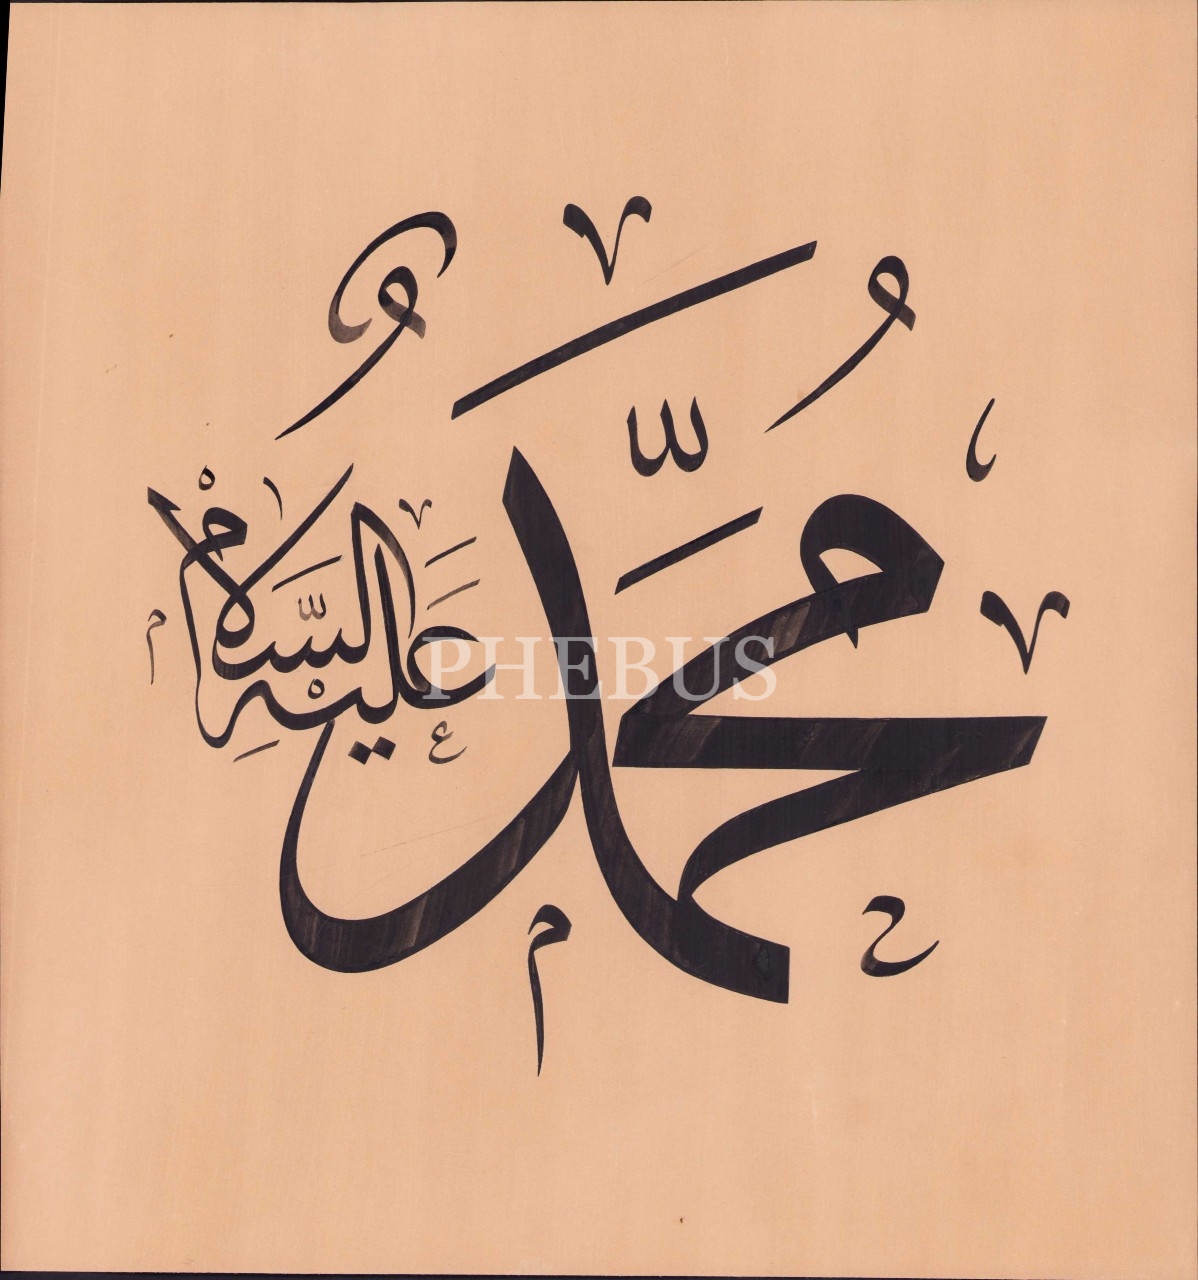 مُحَمَّدٌ
عَلَيْهِ السَّلَامُ
PHEBUS